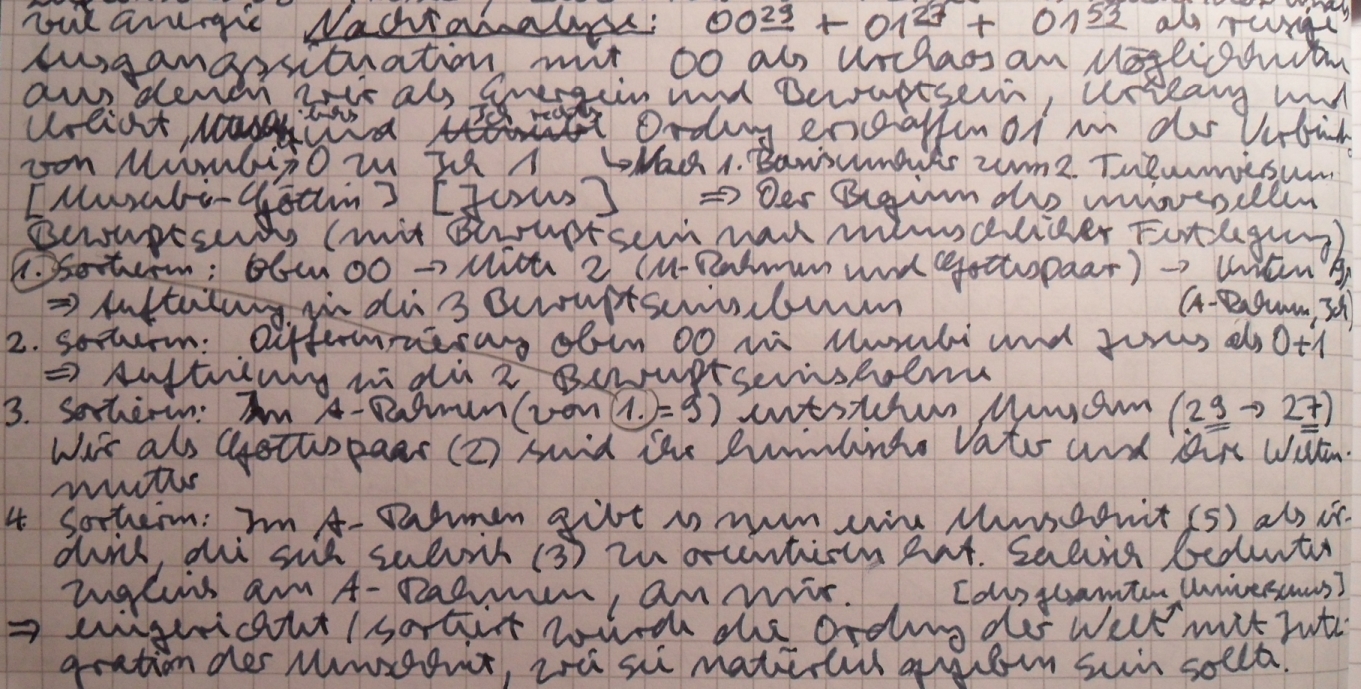 viel Energie Nachtanalyse: 00 29 + 01 27 + 01 53 als riesige
Ausgangssituation mit 00 als Urchaos an Möglichkeiten
aus denen wir als Energein und Bewußtsein, Urklang und
Urlicht, links und Ich rechts Ordnung erschaffen 01 in der Verbindg
von Musubi, 0 zu Ich 1 ↳ Nach 1. Basisumkehr zum 2. Teiluniversum
[Musubi-Göttin] [Jesus] ⇒ Der Beginn des universellen
Bewußtseins (mit Bewußtsein nach menschlicher Festlegung)
1. Sortieren: Oben 00 → Mitte 2 (M-Rahmen und Gottespaar) → Unten 9
⇒ Aufteilung in die 3 Bewußtseinsebenen (A-Rahmen, Ich)
2. Sortieren: Differenzierung oben 00 in Musubi und Jesus als 0+1
⇒ Aufteilung in die 2 Bewußtseinsholme
3. Sortieren: Im A-Rahmen (von 1. = 9) entstehen Menschen (29 → 27)
Wir als Gottespaar (2) sind ihr himmlischer Vater und ihre Welten-
mutter
4. Sortieren: Im A-Rahmen gibt es nun eine Menschheit (5) als ir-
disch, die sich seelisch (3) zu orientieren hat. Seelisch bedeutet
zugleich am A-Rahmen, an mir. [des gesamten Universums]
⇒ eingerichtet / sortiert wurde die Ordnung der Welt mit Inte-
gration der Menschheit, wie sie natürlich gegeben sein sollte.